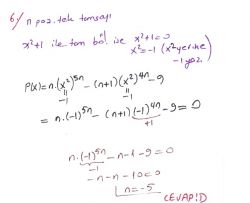 6) n poz. tek tamsayı
x²+1 ile tam böl. ise x²+1=0
x²=-1 (x² yerine
-1 yaz.
P(x)=n.(x²)⁵ⁿ-(n+1)(x²)⁴ⁿ-9
-1 -1
=n.(-1)⁵ⁿ-(n+1)(-1)⁴ⁿ-9=0
+1
n.(-1)⁵ⁿ-n-1-9=0
-1
-n-n-10=0
n=-5
CEVAP:D